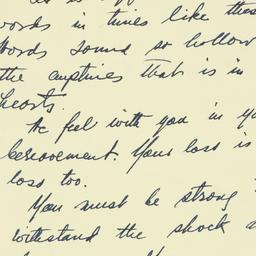 words in times like these
Words sound so hollow
the emptiness that is in
hearts.
We feel with you in
bereavement. Your loss is
loss too.
You must be strong
withstand the shock